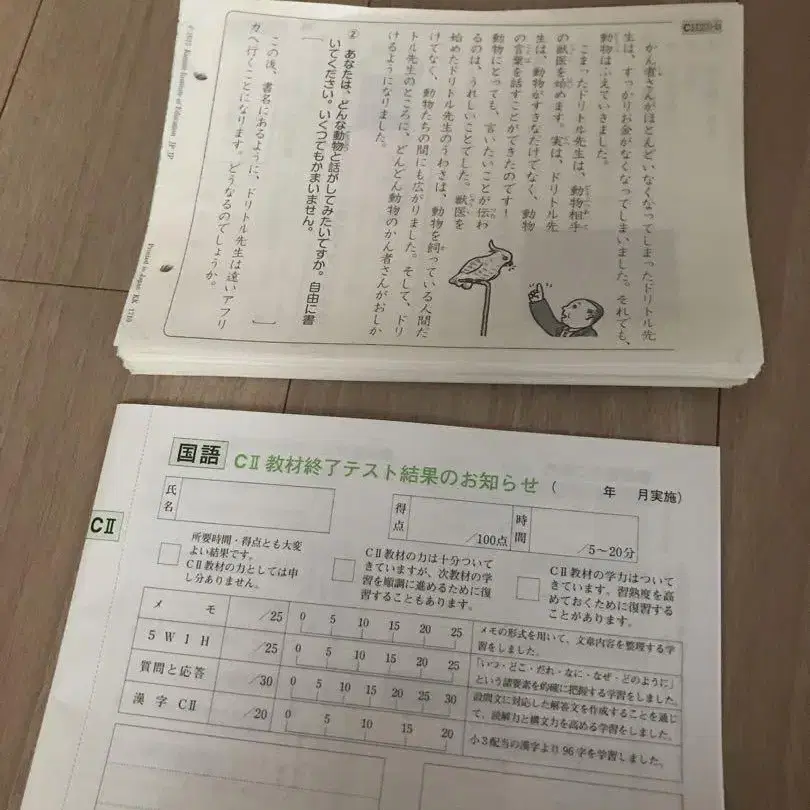 かん者さんがほとんどいなくなってしまったドリトル先
生は、すっかりお金がなくなってしまいました。それでも、
動物はふえていきました。
こまったドリトル先生は、動物相手
の獣医を始めます。実は、ドリトル先
生は、動物がすきなだけでなく、動物
の言葉を話すことができたのです！
動物にとっても、言いたいことが伝わ
るのは、うれしいことでした。獣医を
始めたドリトル先生のうわさは、動物を飼っている人間だ
けでなく、動物たちの間にも広がりました。そして、ドリ
トル先生のところに、どんどん動物のかん者さんがおしか
けるようになりました。
② あなたは、どんな動物と話がしてみたいですか。自由に書
いてください。いくつでもかまいません。
この後、書名にあるように、ドリトル先生は遠いアフリ
カへ行くことになります。どうなるのでしょうか。
Kumon Institute of Education JP JP
Printed in Japan KK 1710
国語 CⅡ 教材終了テスト結果のお知らせ （ 年 月実施）
CⅡ
氏名
得点 /100点
時間 /5〜20分
所要時間・得点とも大変
よい結果です。
CⅡ教材の力としては申
し分ありません。
CⅡ教材の力は十分ついて
きていますが、次教材の学
習を順調に進めるために復
習することもあります。
CⅡ教材の学力はついて
きています。習熟度を高
めておくために復習する
ことがあります。
メモ /25 0 5 10 15 20 25
メモの形式を用いて、文章内容を整理する学
習をしました。
5W1H /25 0 5 10 15 20 25
「いつ・どこ・だれ・なに・なぜ・どのように」
という諸要素を的確に把握する学習をしました。
質問と応答 /30 0 5 10 15 20 25 30
設問文に対応した解答文を作成することを通じ
て、読解力と構文力を高める学習をしました。
漢字CⅡ /20 0 5 10 15 20
小3配当の漢字より96字を学習しました。